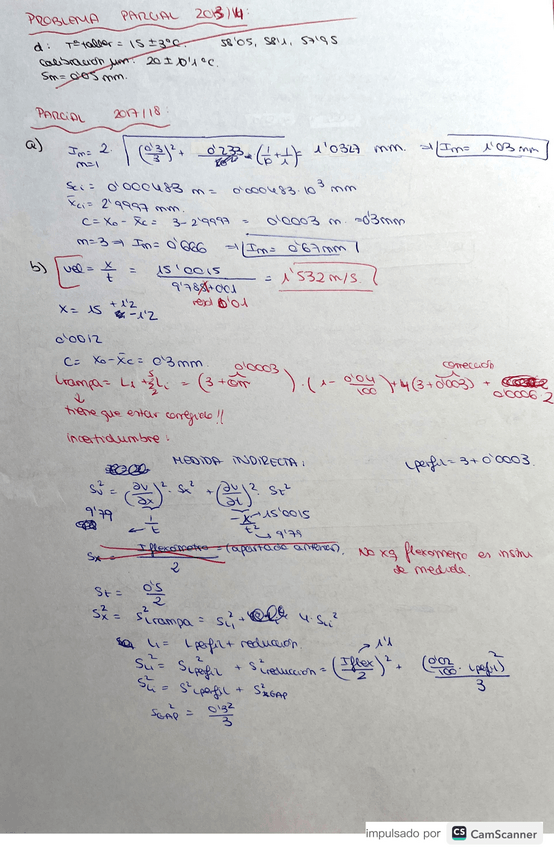 PROBLEMA PARCIAL 2013/14:
d: Tª taller = 15 ± 3°C. 58'05, 58'1, 57'95
calibración μm: 20 ± 0'1 °C.
Sm = 0'05 mm.
PARCIAL 2017/18:
a) Im = 2 √((0'3/3)² + 0'233 · (1/10 + 1/1)) = 1'0327 mm. → Im = 1'03 mm
m=1
Sci = 0'000483 m = 0'000483·10³ mm
x̄ci = 2'9997 mm.
C = x0 - x̄c = 3 - 2'9997 = 0'0003 m. = 0'3 mm
m=3 → Im = 0'666 → Im = 0'67 mm
b) vel = x/t = 15'0015 / 9'78 + 001 = 1'532 m/s.
resol 0'01
x = 15 + 1'2 - 1'2
0'0012
C = x0 - x̄c = 0'3 mm. 0'0003 corrección
Lrampa = L1 + Li = (3 + ) · (1 - 0'04/100) + 4(3 + 0'003) + 0'0006·2
↓
tiene que estar corregido!!
incertidumbre:
MEDIDA INDIRECTA: Lperfil = 3 + 0'0003.
Sv² = (∂v/∂x)² · Sx² + (∂v/∂t)² · St²
9'79 ← 1/t -x/t² → 15'0015
→ 9'79
Sx = Iflexometro / 2 (apartado anterior). No xq flexometro es instru
de medida.
St = 0'5 / 2
Sx² = S²Lrampa = SL1² + 4·SLi²
L1 = Lperfil + reducción → 1'1
SL1² = S²Lperfil + S²Lreduccion = (Iflex/2)² + (0'02/100 · Lperfil)² / 3
SLi² = S²Lperfil + S²GAP
SGAP² = 0'3² / 3
impulsado por CS CamScanner